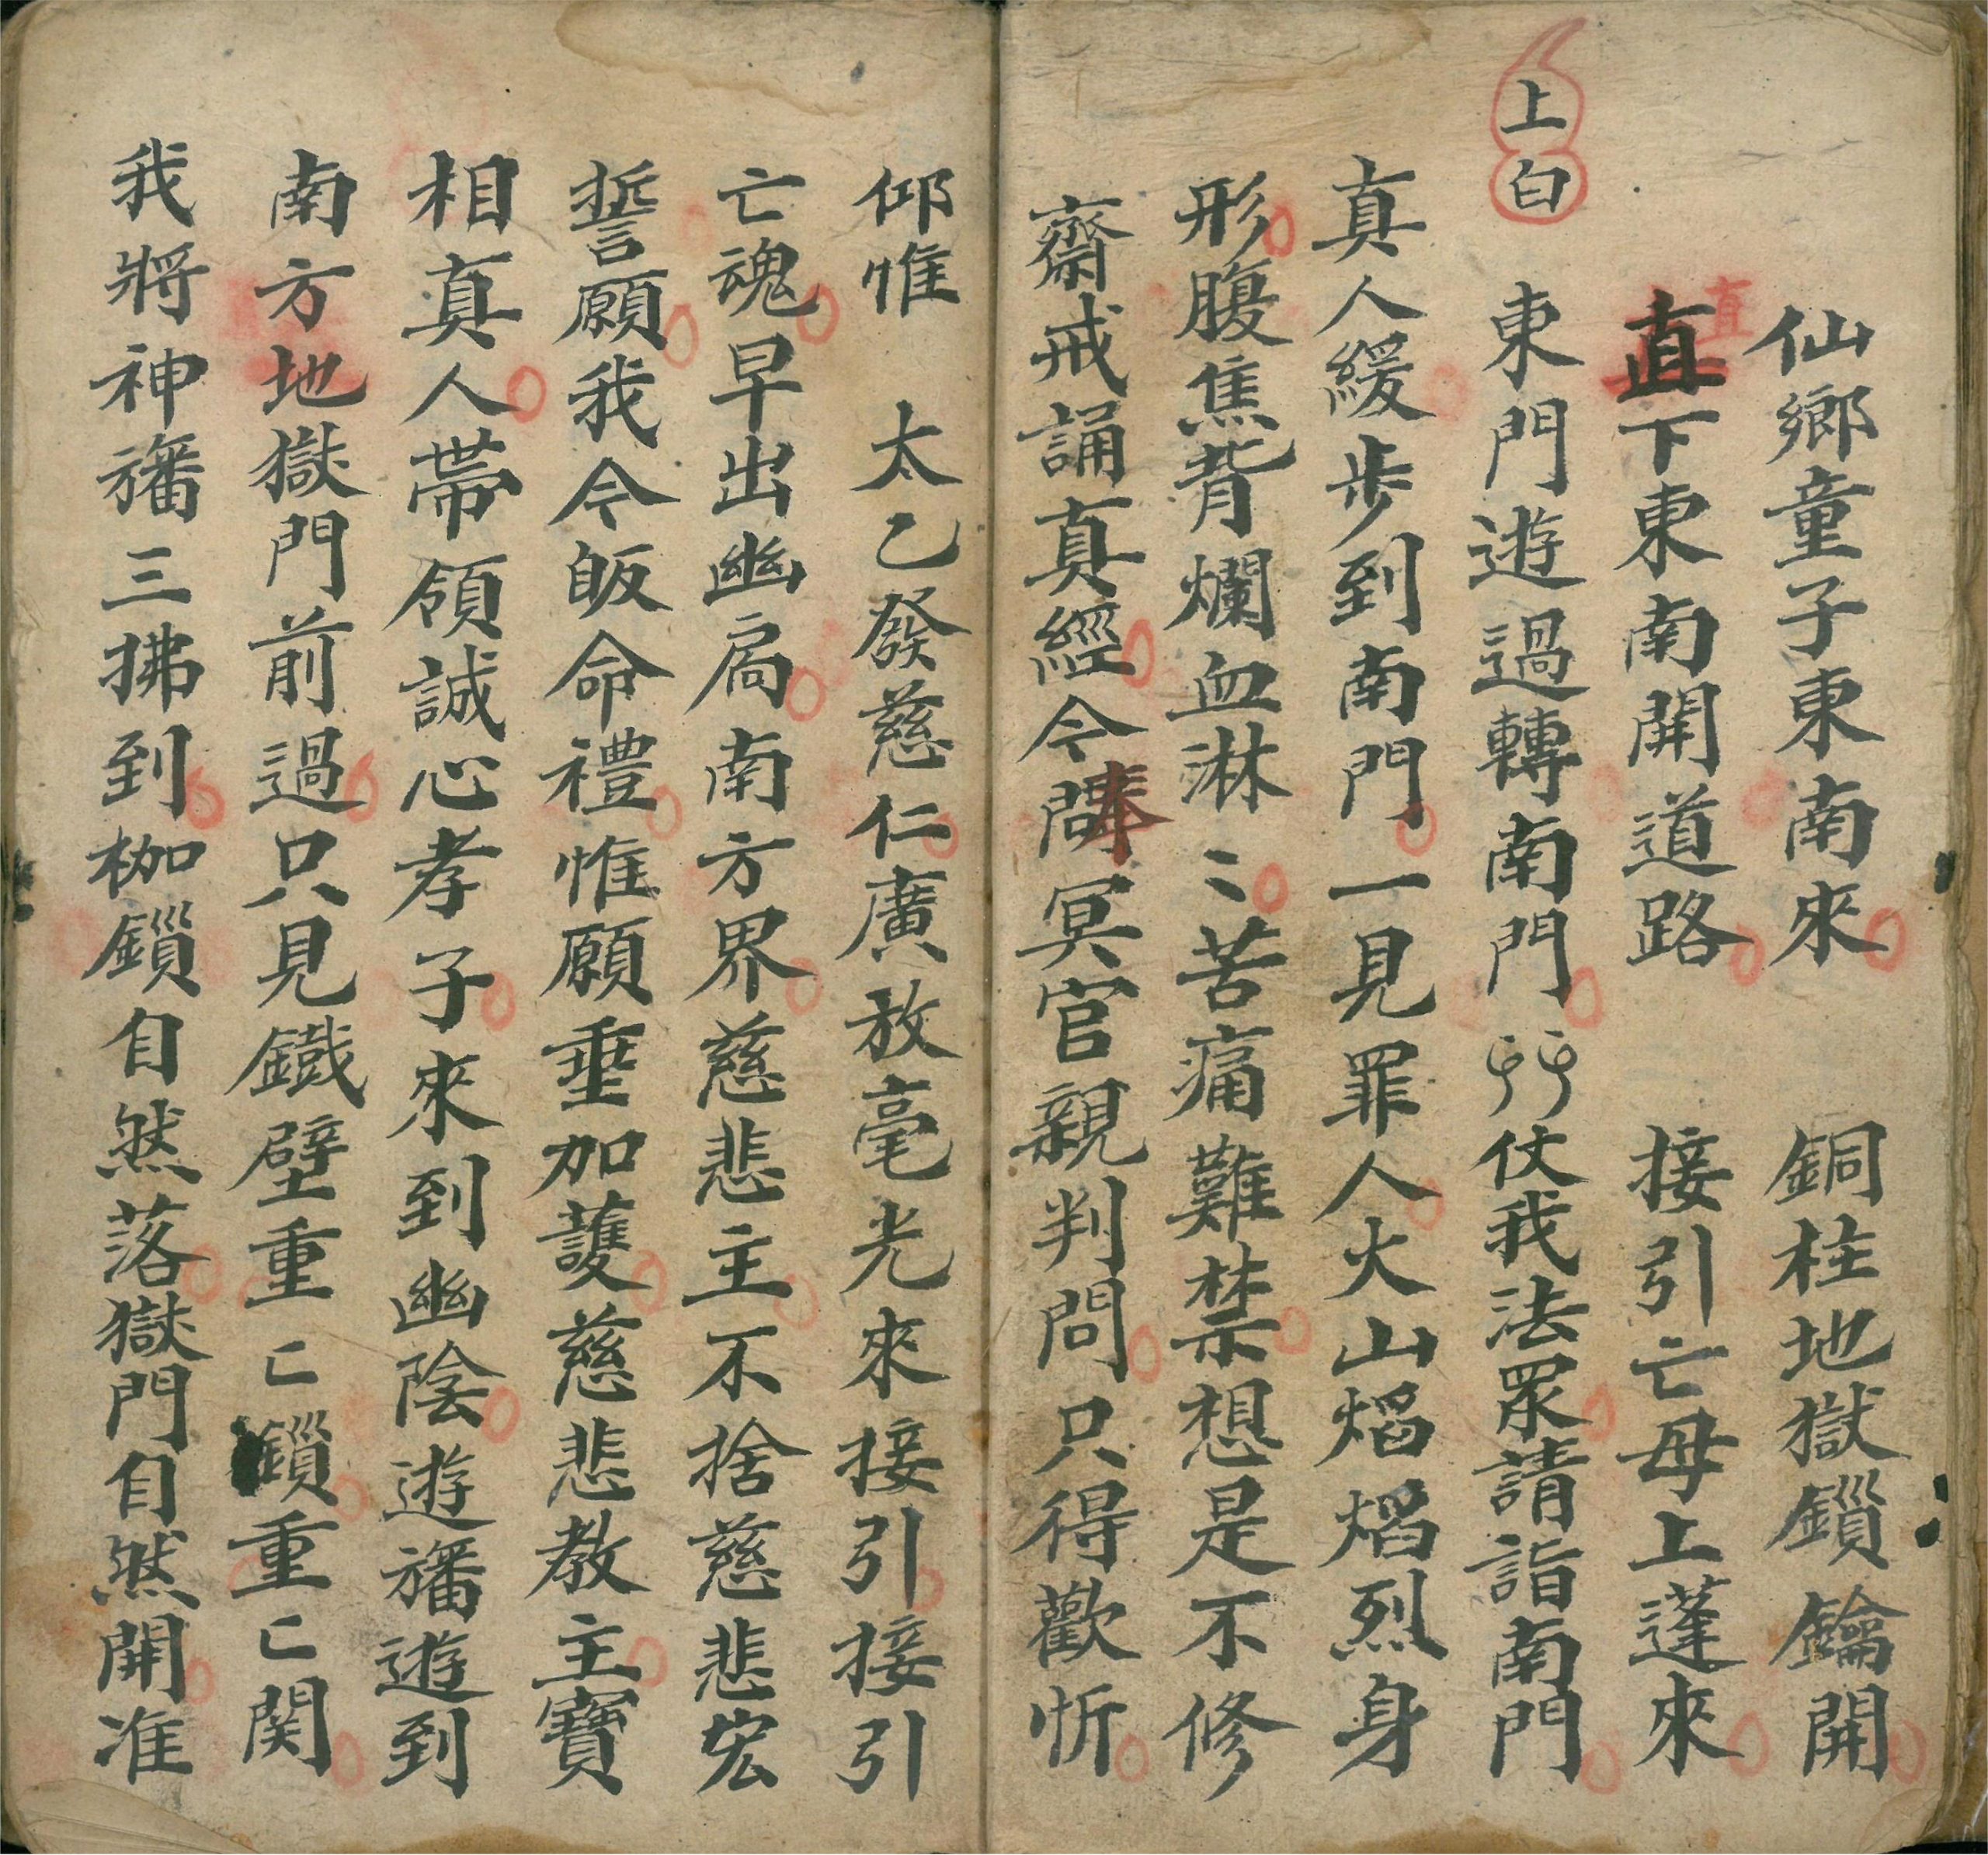 仙鄉童子東南來 銅柱地獄鎻鑰開
直下東南開道路 接引亡母上蓬來
直
上白 東門遊過轉南門 仗我法眾請詣南門
真人緩步到南門一見罪人火山熖熖烈身
形腹焦背爛血淋〻苦痛難禁想是不修
齋戒誦真經今冥官親判問只得歡忻
仰惟 太乙發慈仁廣放毫光來接引接引
亡魂早出幽扃南方界慈悲主不捨慈悲宏
誓願我今皈命禮惟願垂加護慈悲教主寶
相真人帶領誠心孝子來到幽陰遊旛遊到
南方地獄門前過只見鐵壁重〻鎻重〻関
我將神旛三拂到枷鎻自然落獄門自然開准